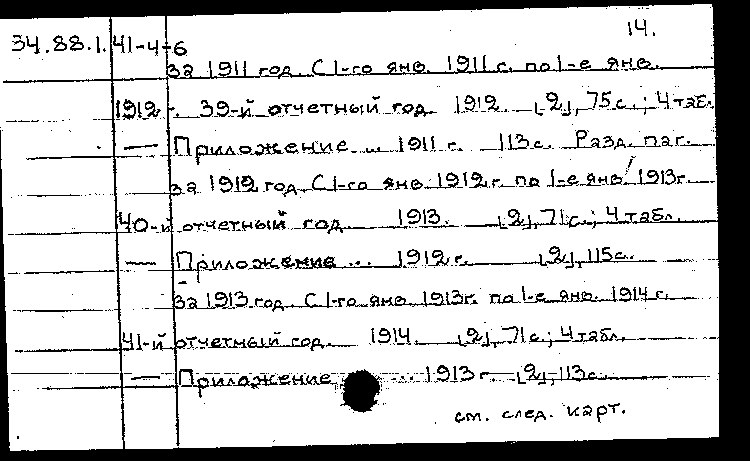 14.
34.88.1. 41-4-6
за 1911 год. С 1-го янв. 1911 г. по 1-е янв.
1912 г. 39-й отчетный год. 1912. [2], 75 с.; 4 таб.
— Приложение ... 1911 г. 113 с. Разд. паг.
за 1912 год. С 1-го янв. 1912 г. по 1-е янв. 1913 г.
40-й отчетный год. 1913. [2], 71 с.; 4 табл.
— Приложение ... 1912 г. [2], 115 с.
за 1913 год. С 1-го янв. 1913 г. по 1-е янв. 1914 г.
41-й отчетный год. 1914. [2], 71 с.; 4 табл.
— Приложение ... 1913 г. [2], 113 с.
см. след. карт.